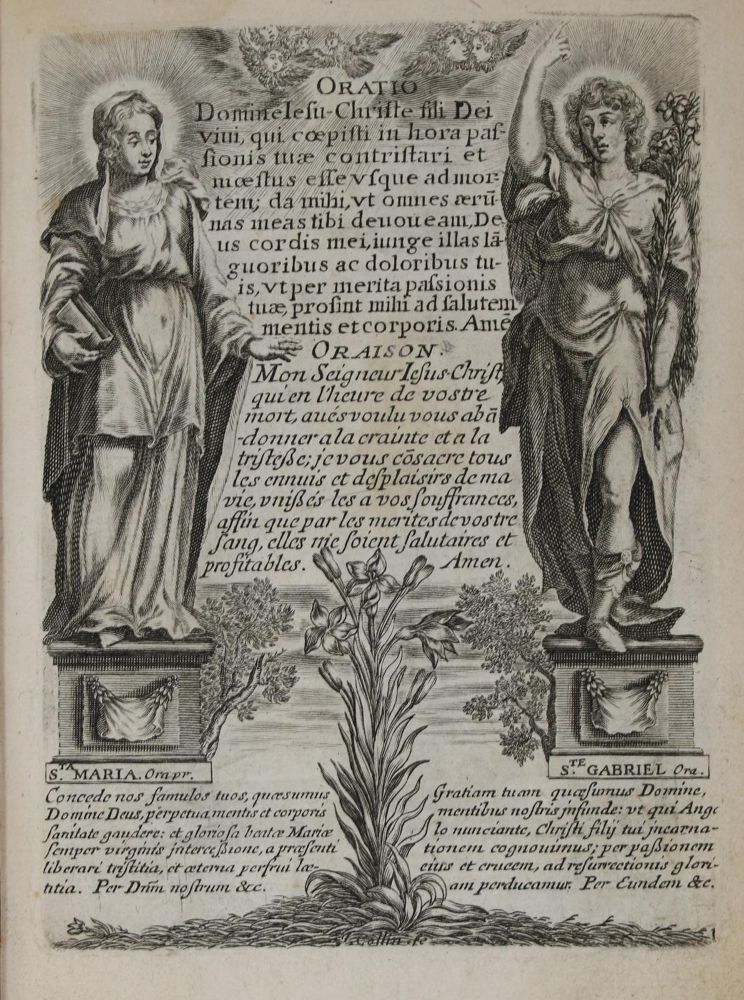 ORATIO
Domine Iesu-Christe fili Dei
viui, qui cœpisti in hora pas-
sionis tuæ contristari et
mœstus esse vsque ad mor-
tem; da mihi, vt omnes ærū
nas meas tibi deuoueam, De-
us cordis mei, iunge illas lā-
guoribus ac doloribus tu-
is, vt per merita passionis
tuæ, prosint mihi ad salutem
mentis et corporis. Amē
ORAISON.
Mon Seigneur Iesus-Christ,
qui en l'heure de vostre
mort, aués voulu vous abā
-donner a la crainte et a la
tristesse; je vous cōsacre tous
les ennuis et desplaisirs de ma
vie, vnissés les a vos souffrances,
affin que par les merites de vostre
sang, elles me soient salutaires et
profitables. Amen.
S.TA MARIA. Ora pr.
Concede nos famulos tuos, quæsumus
Domine Deus, perpetua mentis et corporis
sanitate gaudere: et gloriosa beatæ Mariæ
semper virginis intercessione, a præsenti
liberari tristitia, et æterna perfrui læ-
titia. Per Dnm̄ nostrum &c.
S.TE GABRIEL Ora.
Gratiam tuam quæsumus Domine,
mentibus nostris jnfunde: vt qui Ange
lo nunciante, Christi filij tui jncarna-
tionem cognouimus; per passionem
eius et crucem, ad resurrectionis glori-
am perducamur. Per Eundem &c.
Collin fe